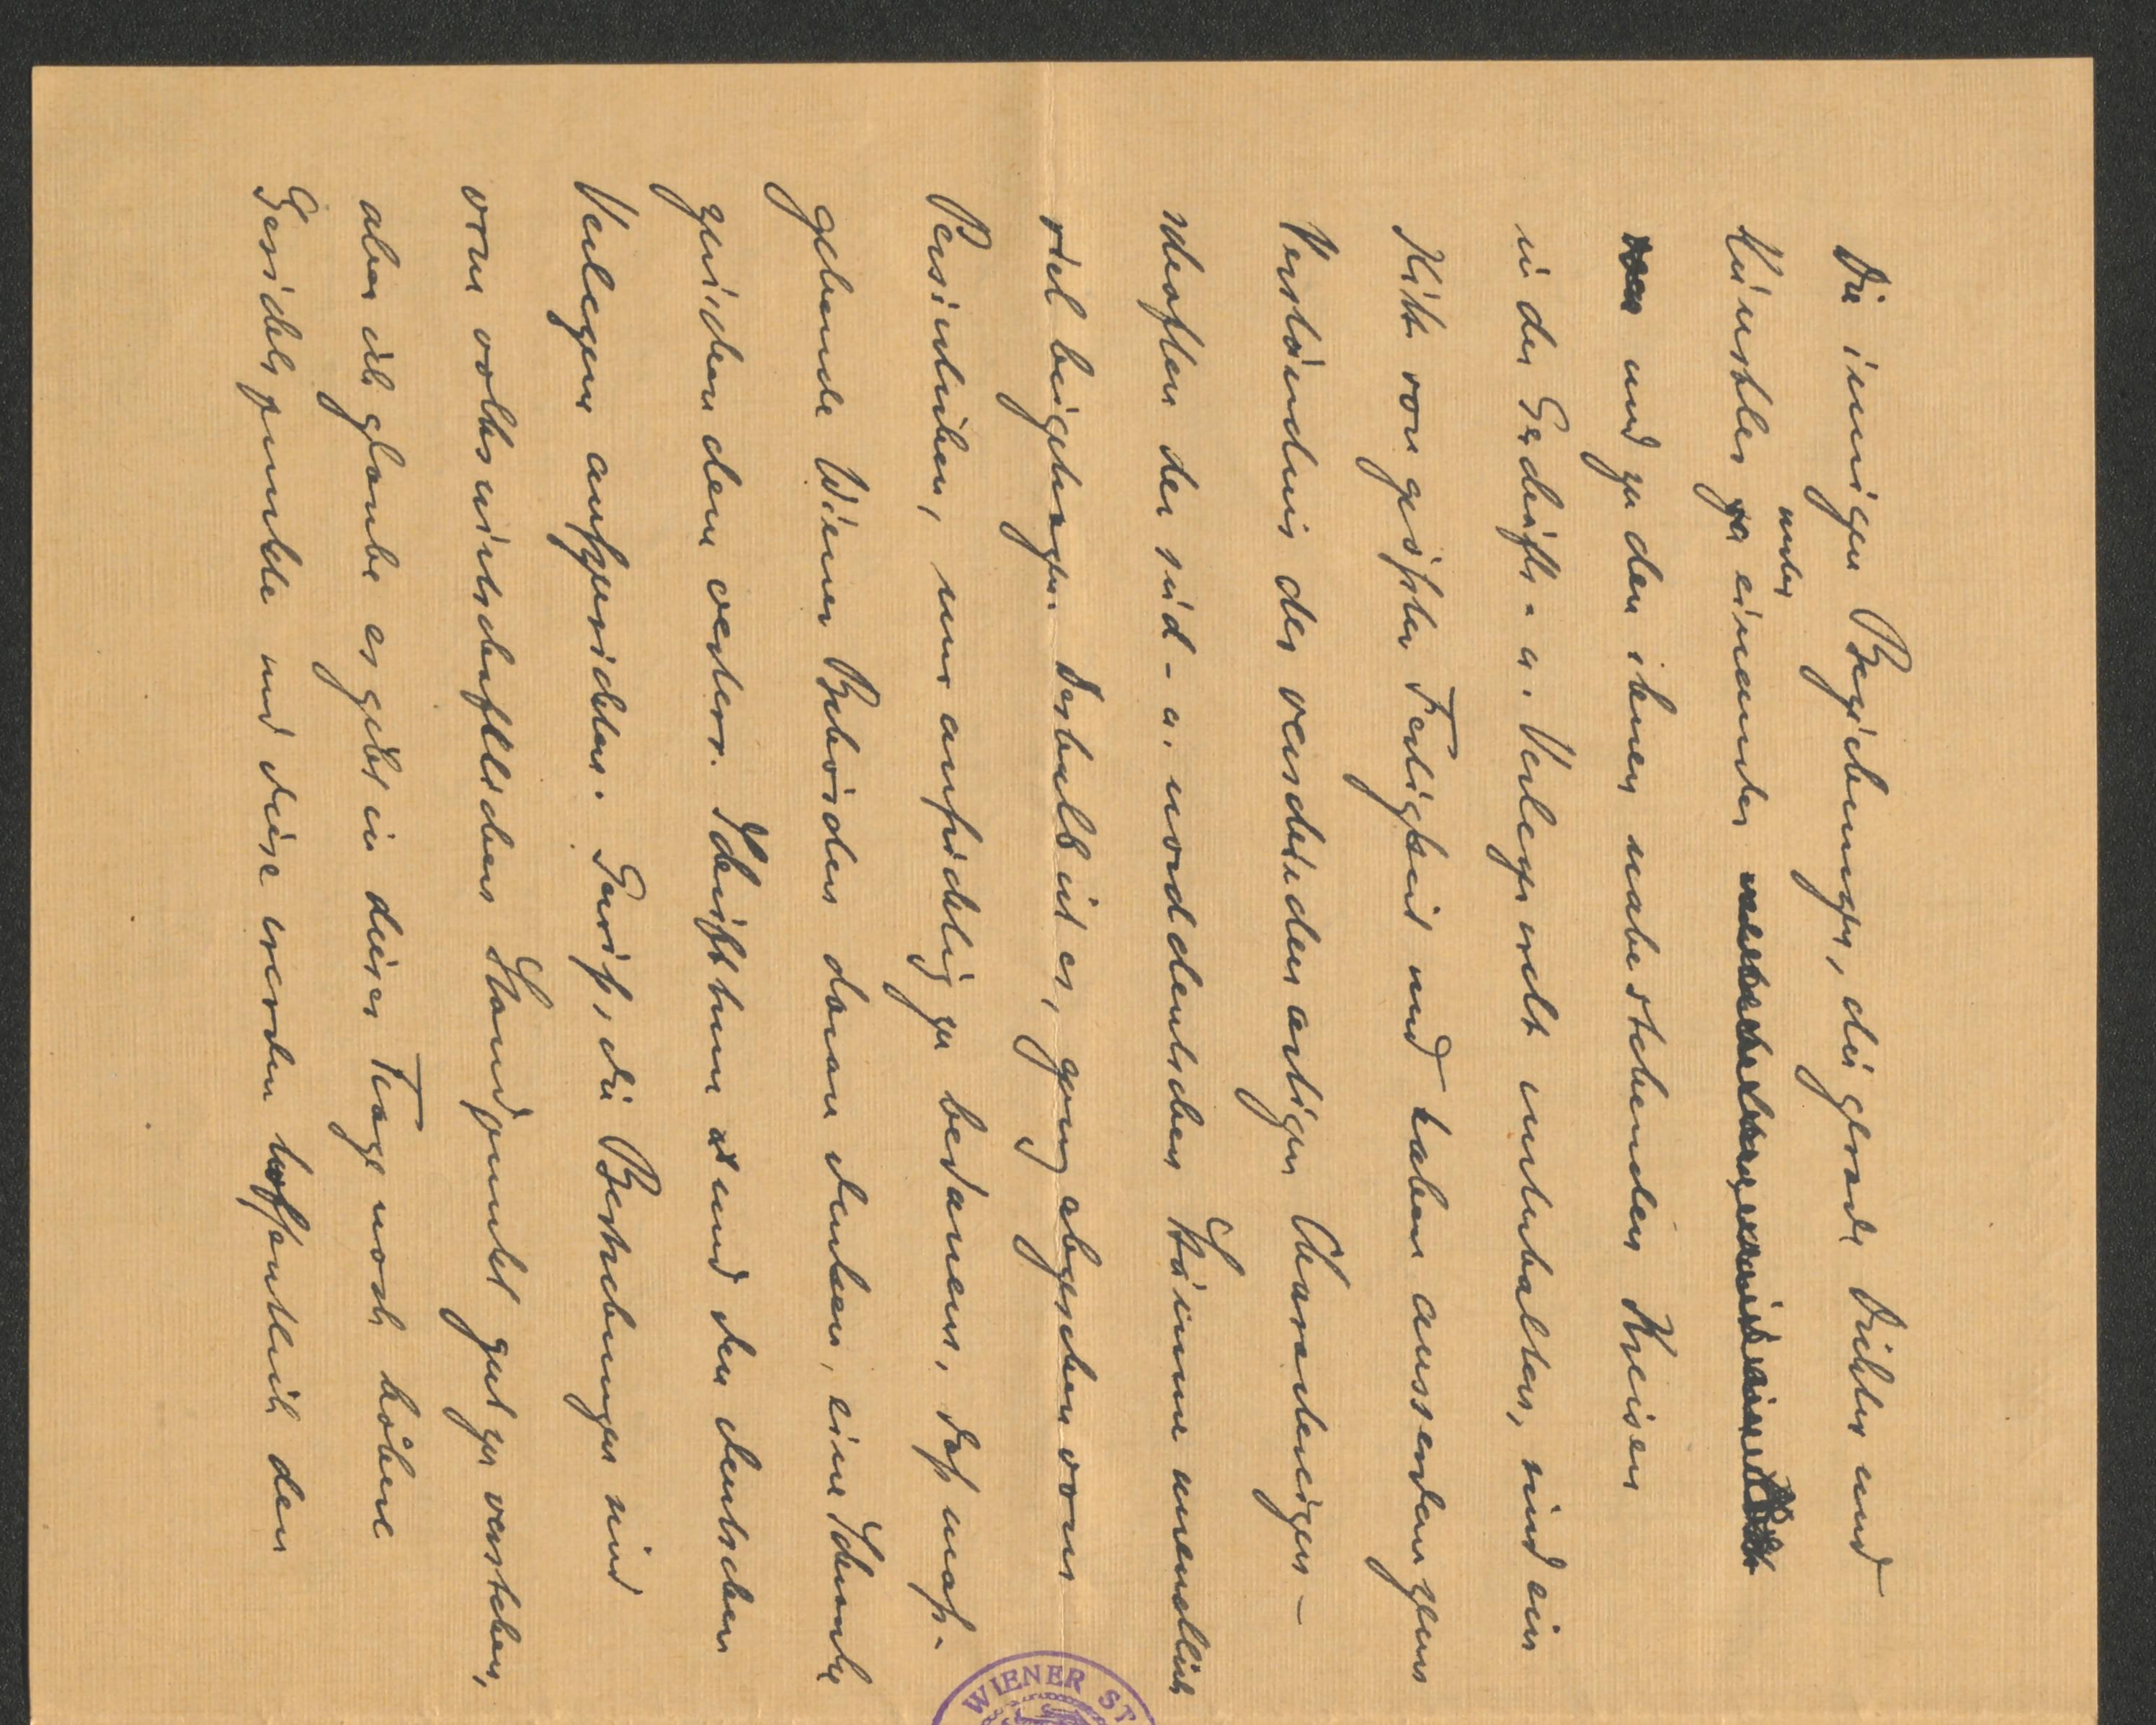 Die innigen Beziehungen, die grade Dichter und
unter
Künstler einander
und zu den ihnen nahestehenden Kreisen
in der Geschäfts- u. Verlagswelt unterhalten, sind ein
Kitt von größter Festigkeit und haben ausserdem zum
Verständnis der verschiedenartigen Charaktereigen-
schaften der süd- u. norddeutschen Stämme unendlich
viel beigetragen. Deshalb ist es, ganz abgesehen vom
Persönlichen, nur aufrichtig zu bedauern, daß maß-
gebende Wiener Behörden daran denken, eine Schranke
zwischen dem oesterr. Schrifttum und den deutschen
Verlegern aufzurichten. Gewiß, die Bestrebungen sind
vom volkswirtschaftlichen Standpunkt gut zu verstehen,
aber ich glaube es gibt in dieser Frage noch höhere
Gesichtspunkte und diese werden hoffentlich den
WIENER ST